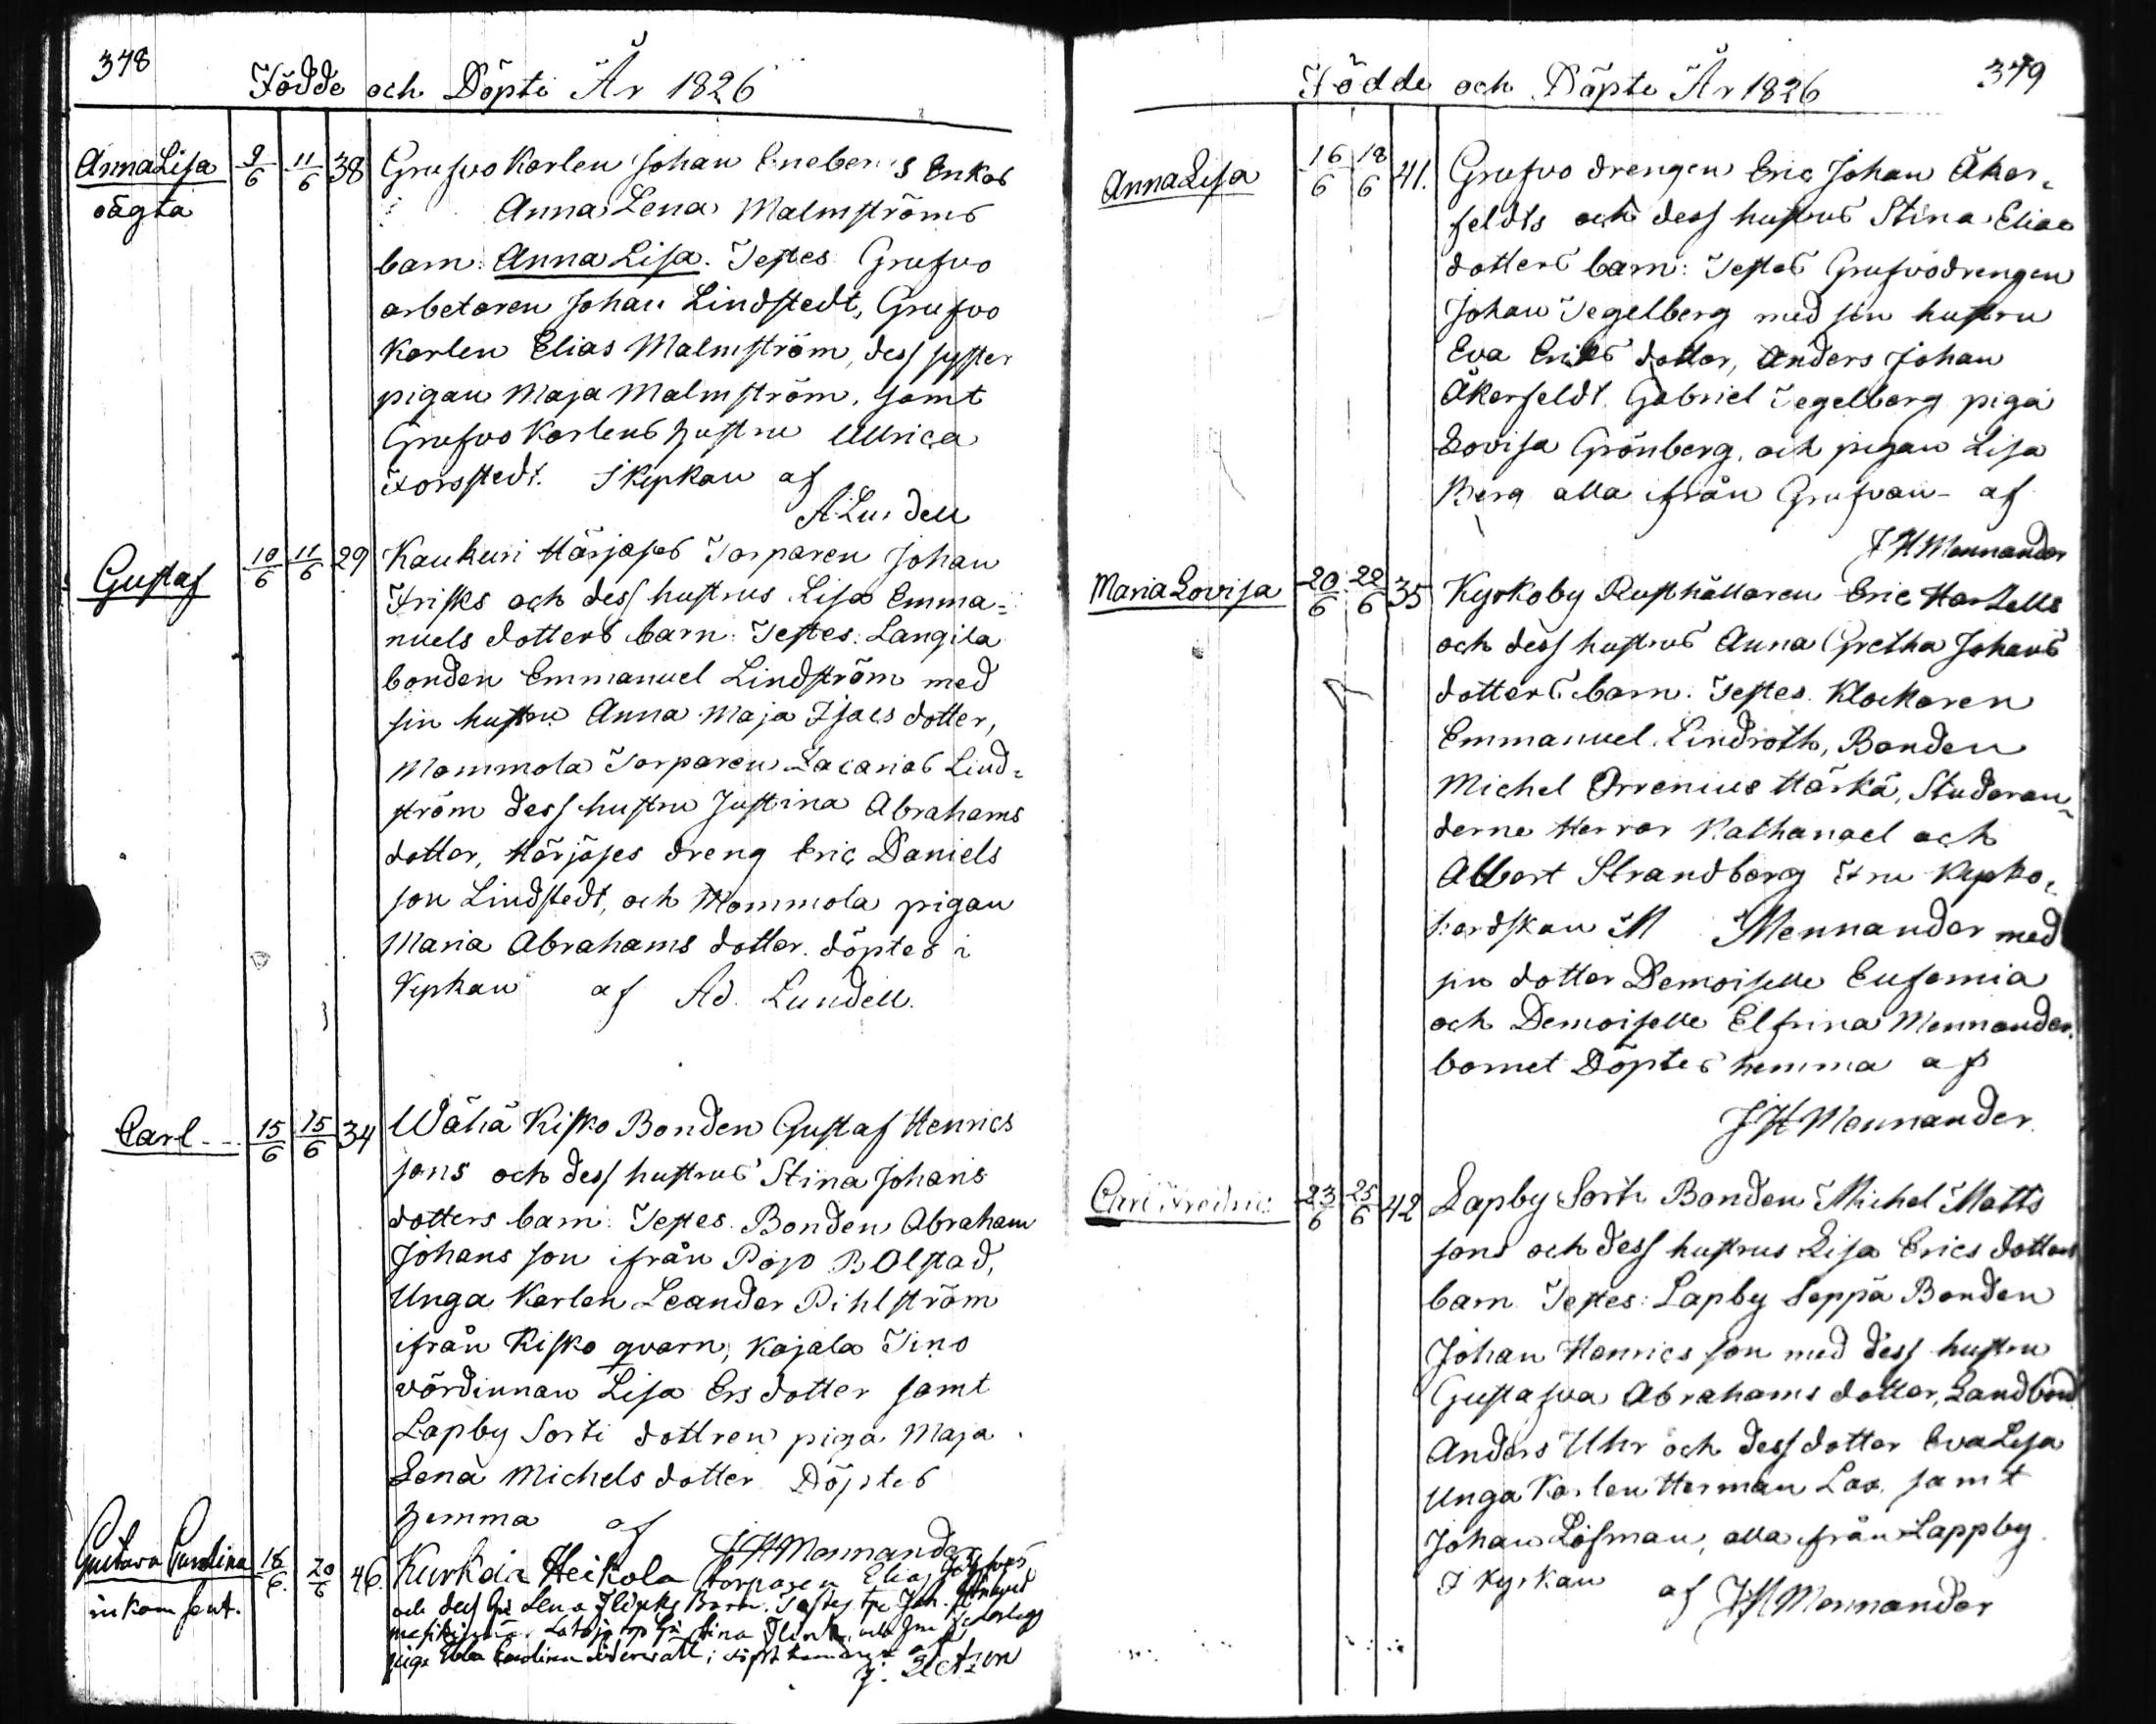 378
Födde och Döpte År 1826
Anna Lisa 9/6 11/6 38 Grufvo Karlen Johan Enebergs Enkas
oägta Anna Lena Malmströms
barn: Anna Lisa. Testes Grufvo
arbetaren Johan Lindstedt, Grufvo
Karlen Elias Malmström, dess syster
pigan Maja Malmström, samt
Grufvo Karlens hustru Ullrica
Forsstedt. I Kyrkan af
A Lundell
Gustaf 10/6 11/6 29 Kaukuri Härjäses Torparen Johan
Frisks och dess hustrus Lisa Emma=
nuels dotters barn: Testes: Langila
bonden Emmanuel Lindström med
sin hustru Anna Maja Isacs dotter,
Mommola Torparen Zacarias Lind=
ström dess hustru Justina Abrahams
dotter, Härjäses dreng Eric Daniels
son Lindstedt, och Mommola pigan
Maria Abrahams dotter. döptes i
Kyrkan af Ad. Lundell.
Carl 15/6 15/6 34 Wähä Kisko Bonden Gustaf Henrics
sons och dess hustrus Stina Johans
dotters barn: Testes. Bonden Abraham
Johans son ifrån Pojo Bolstad,
Unga Karlen Leander Pihlström
ifrån Kisko qvarn, Kajala Tino
värdinnan Lisa Ersdotter samt
Lapby Sorti dottren piga Maja
Lena Michelsdotter Döptes
hemma af
J H Mennander
Gustava Carolina 18/6 20/6 46. Kurkela Heikola torparen Elias
inkom sent. och dess Lena Flinks Barn. Testes Joh.
Stina Flink
piga Ulla Carolina
379
Födde och Döpte År 1826
Anna Lisa 16/6 18/6 41. Grufvo drengen Eric Johan Åker=
feldts och dess hustrus Stina Elias
dotters barn: Testes Grufvodrengen
Johan Tegelberg med sin hustru
Eva Eriks dotter, Anders Johan
Åkerfeldt Gabriel Tegelberg piga
Lovisa Grönberg, och pigan Lisa
Berg alla ifrån Grufvan - af
J H Mennander
Maria Lovisa 20/6 22/6 35 Kyrkoby Rusthållaren Eric Hartells
och dess hustrus Anna Gretha Johans
dotters barn. Testes. Klockaren
Emmanuel Lindroth, Bonden
Michel Orrenius Härkä, Studeran=
derne Herrar Nathanael och
Albert Strandberg Fru Kyrko=
herdskan M Mennander med
sin dotter Demoiselle Eufemia
och Demoiselle Elfrina Mennander.
barnet Döptes hemma af
J H Mennander.
Carl Fredric 23/6 25/6 42 Lapby Sorti Bonden Michel Matts
sons och dess hustrus Lisa Erics dotters
barn Testes: Lapby Seppä Bonden
Johan Henrics son med dess hustru
Gustafva Abrahams dotter, Landbond
Anders Uhr och dess dotter Eva Lisa
Unga Karlen Herman Lax, samt
Johan Löfman, alla ifrån Lappby.
I Kyrkan af J H Mennander